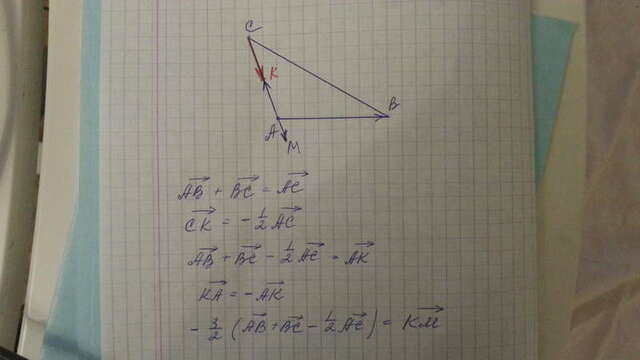 C
K
B
A
M
\overrightarrow{AB} + \overrightarrow{BC} = \overrightarrow{AC}
\overrightarrow{CK} = -\frac{1}{2}\overrightarrow{AC}
\overrightarrow{AB} + \overrightarrow{BC} - \frac{1}{2}\overrightarrow{AC} = \overrightarrow{AK}
\overrightarrow{KA} = -\overrightarrow{AK}
-\frac{3}{2}(\overrightarrow{AB} + \overrightarrow{BC} - \frac{1}{2}\overrightarrow{AC}) = \overrightarrow{KM}